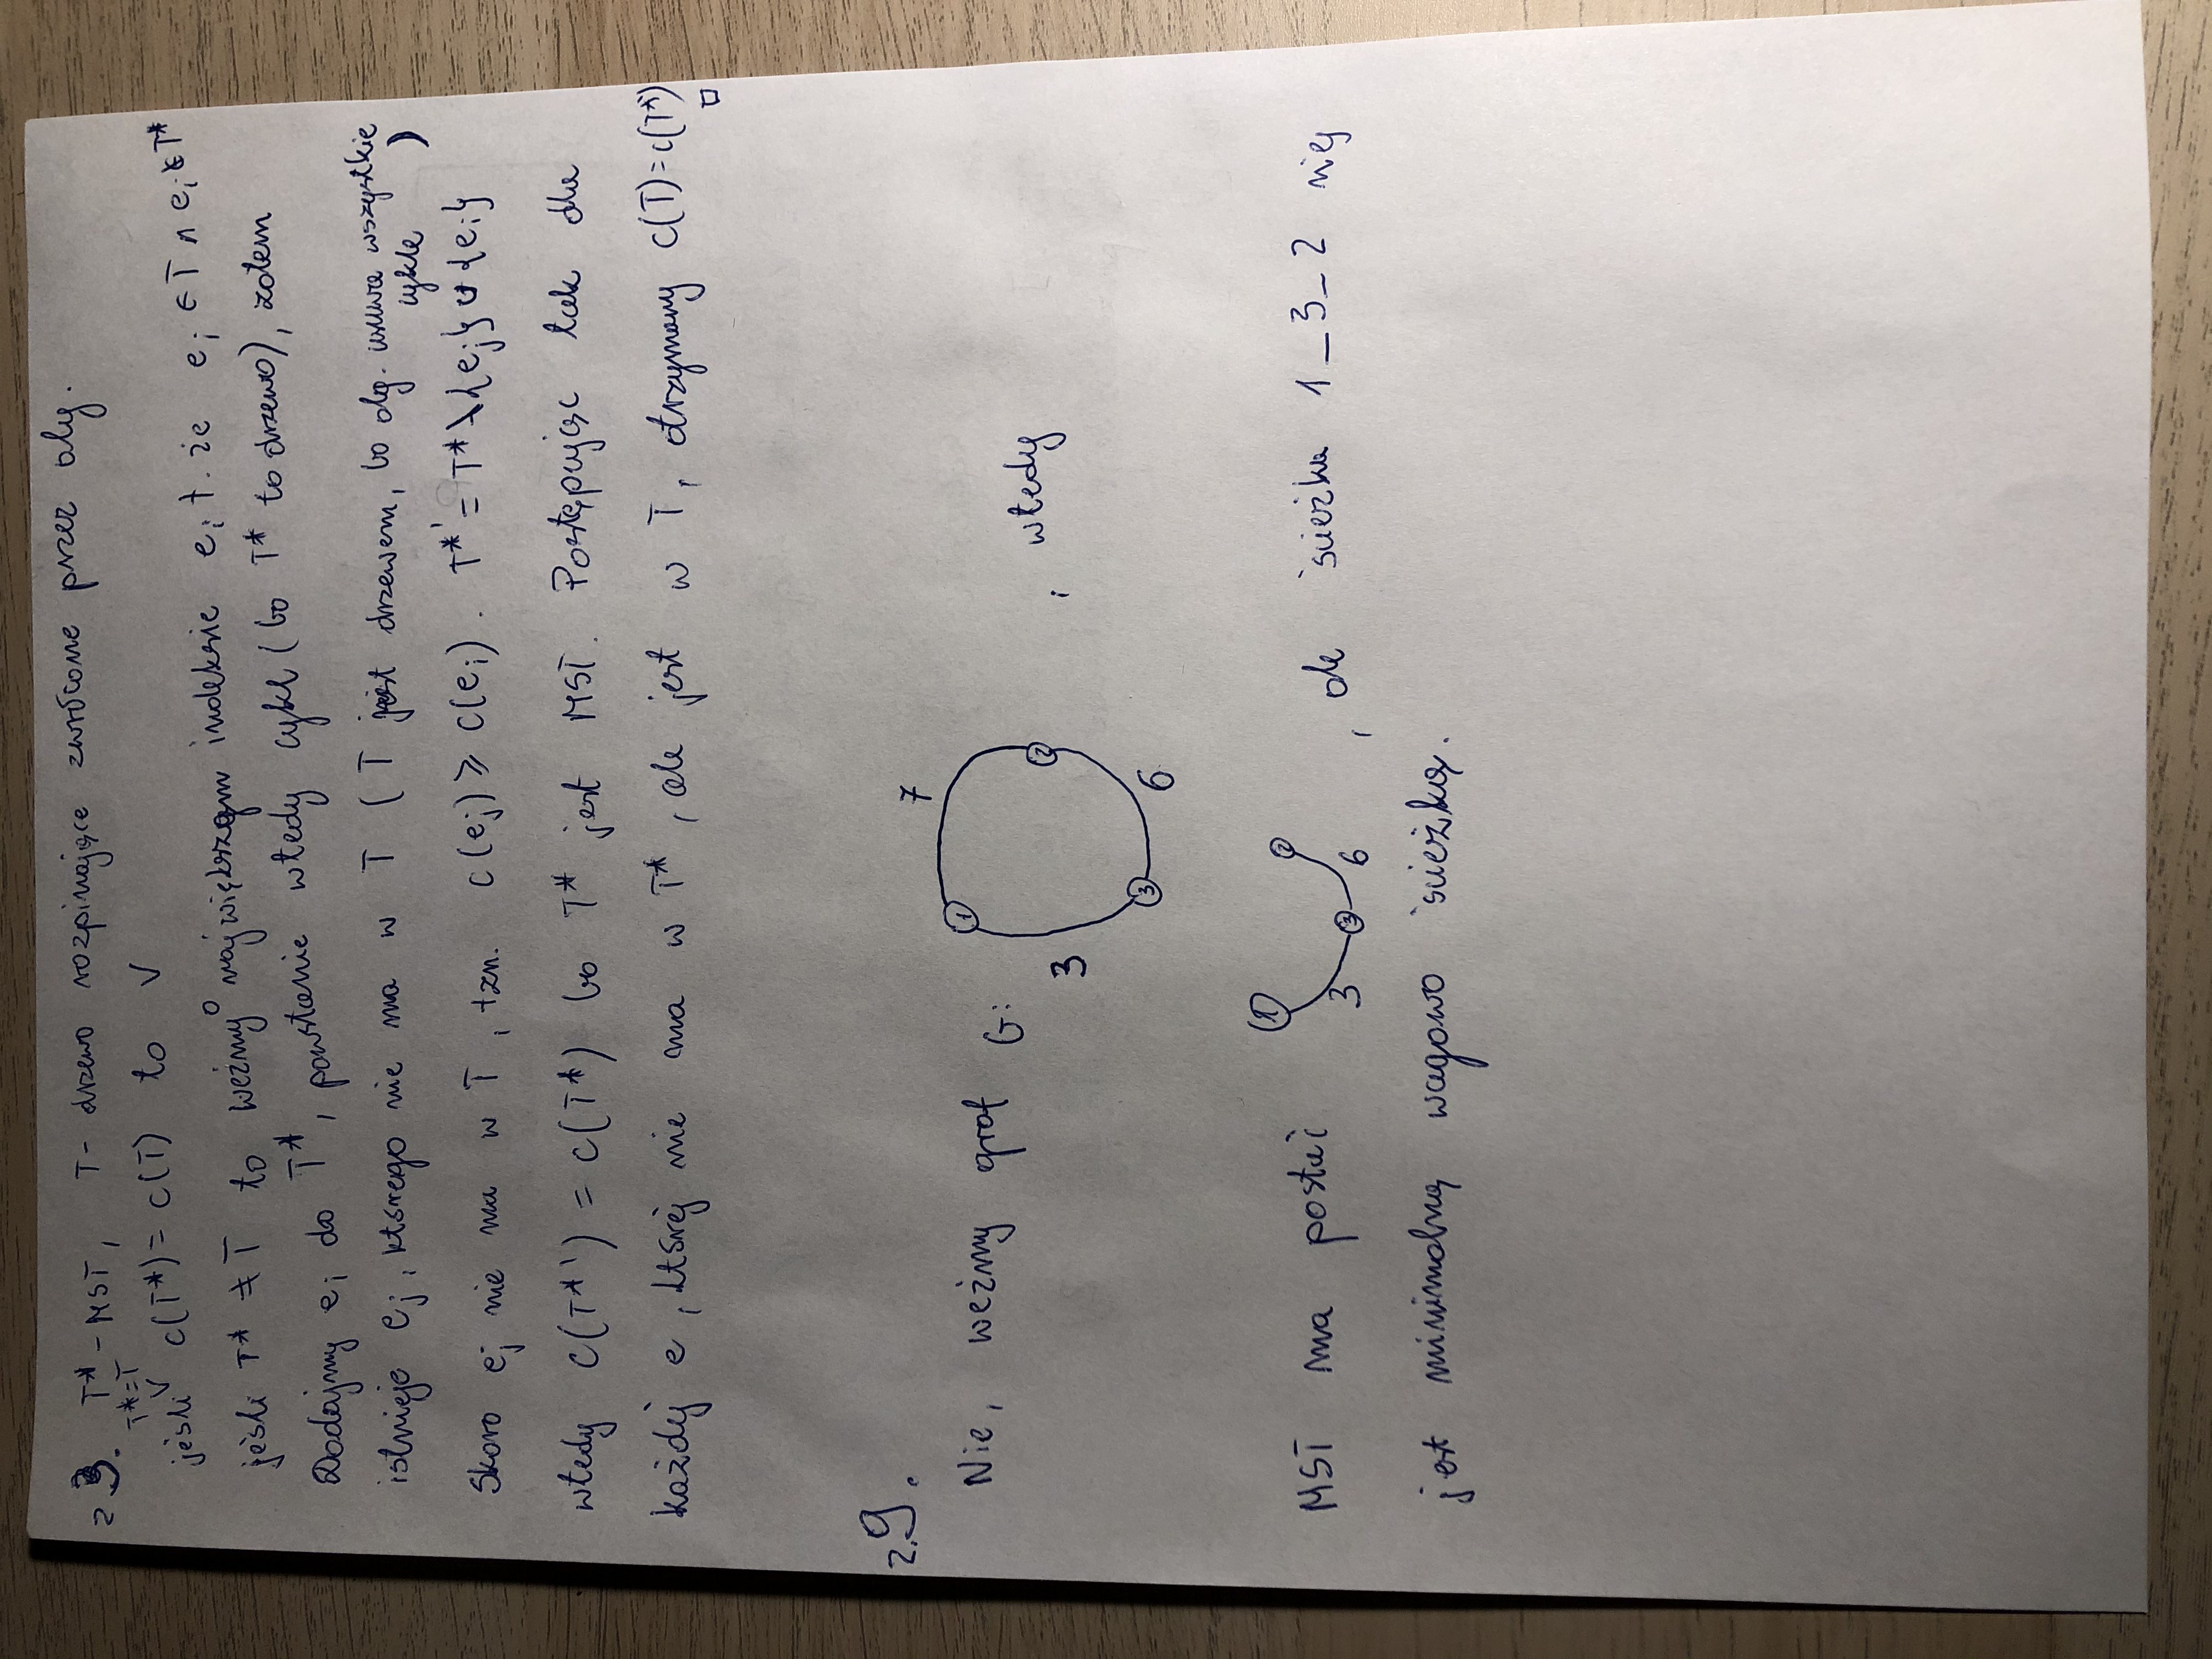 z 3. T* - MST, T - drzewo rozpinające zwrócone przez alg.
T*=T
jeśli v c(T*) = c(T) to √
jeśli T* ≠ T to weźmy o największym indeksie e_i t. że e_i ∈ T ∧ e_i ∉ T*
Dodajmy e_i do T*, powstanie wtedy cykl (bo T* to drzewo), zatem
istnieje e_j, którego nie ma w T (T jest drzewem, bo alg. usuwa wszystkie
cykle )
Skoro e_j nie ma w T, tzn. c(e_j) ⩾ c(e_i). T*' = T* \ {e_j} ∪ {e_i}
wtedy c(T*') = c(T*) bo T* jest MST. Postępując tak dla
każdej e, której nie ma w T*, ale jest w T, otrzymamy c(T) = c(T*)
□
z. 9.
Nie, weźmy graf G: , wtedy
7
1
2
3
3
6
MST ma postać , ale ścieżka 1_3_2 nie
1
2
3
3
6
jest minimalną wagowo ścieżką.